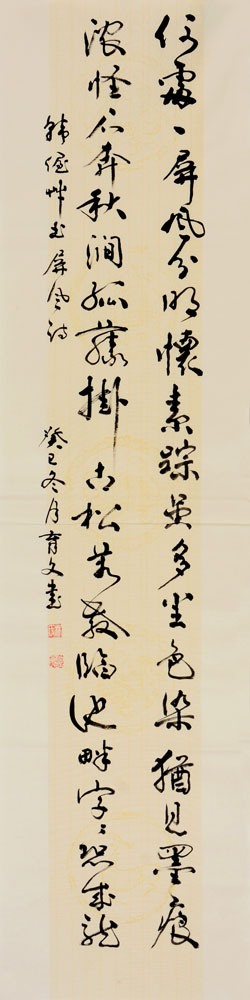 何處一屏風分明懷素踪虽多尘色染猶見墨痕
濃怪石奔秋澗孤藤掛古松若教臨池畔字々恐成龍
韓偓艸書屏風詩 癸巳冬月育文書